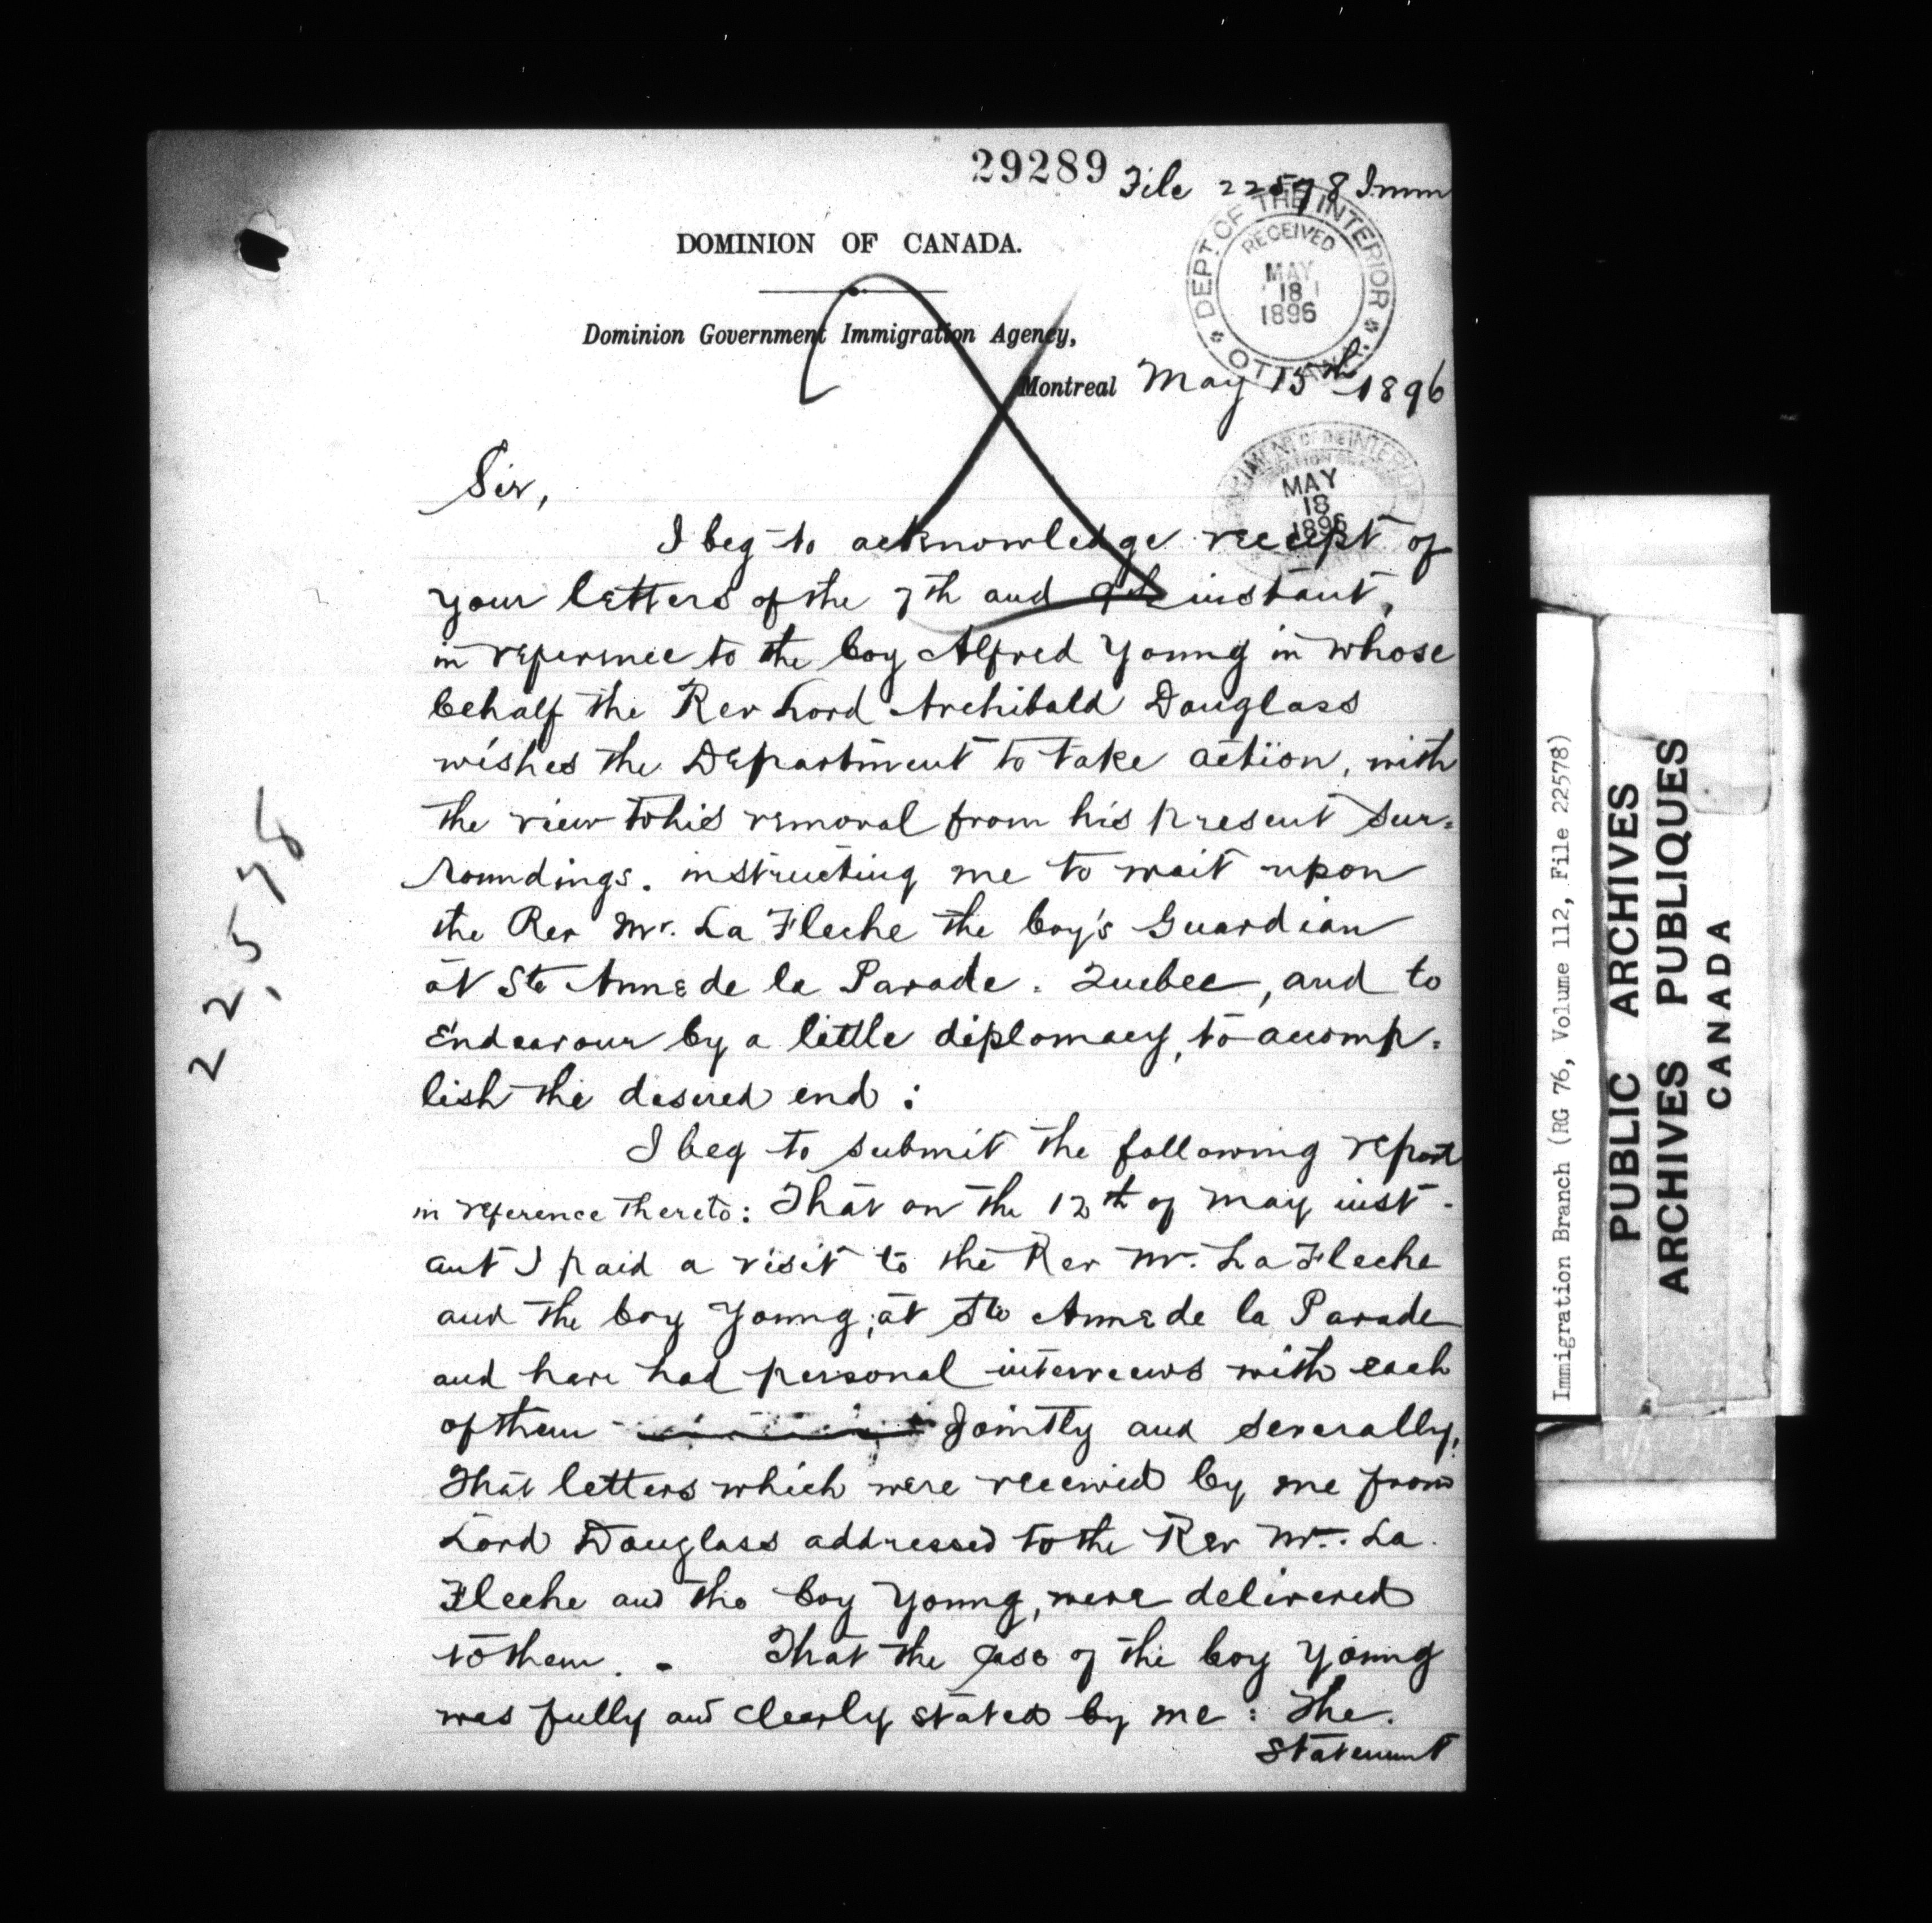 29289 File 22578 Imm
DOMINION OF CANADA.
DEPT. OF THE INTERIOR
RECEIVED
MAY
18
1896
OTTAWA
Dominion Government Immigration Agency,
Montreal May 15th 1896
MAY
18
1896
Sir,
I beg to acknowledge receipt of
your letters of the 7th and 9th instant,
in reference to the boy Alfred Young in whose
behalf the Rev Lord Archibald Douglass
wishes the Department to take action, with
the view to his removal from his present sur=
roundings. instructing me to wait upon
the Rev Mr. La Fleche the boy's Guardian
at Ste Anne de la Parade. Quebec, and to
Endeavour by a little diplomacy, to accomp=
lish the desired end:
I beg to submit the following report
in reference thereto: That on the 12th of May inst-
ant I paid a visit to the Rev Mr. La Fleche
and the boy Young; at Ste Anne de la Parade
and have had personal interviews with each
of them Jointly and severally,
That letters which were received by me from
Lord Douglass addressed to the Rev Mr. La
Fleche and the boy Young, were delivered
to them. - That the case of the boy Young
was fully and clearly stated by me: The
Statement
22,578
Immigration Branch (RG 76, Volume 112, File 22578)
PUBLIC ARCHIVES
ARCHIVES PUBLIQUES
CANADA